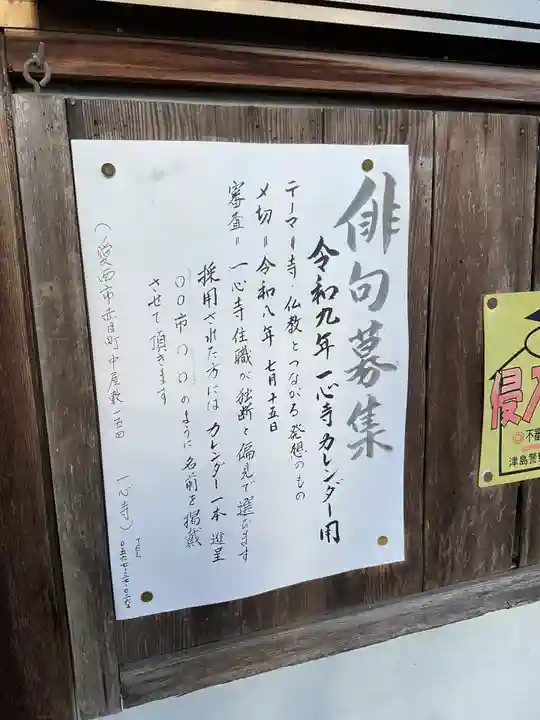 俳句募集
令和九年 一心寺カレンダー用
テーマ=寺・仏教とつながる発想のもの
〆切=令和八年 七月十五日
審査=一心寺住職が独断と偏見で選びます
採用された方には カレンダー一本 進呈
〇〇市 〇〇のように 名前を掲載
させて頂きます
(愛西市赤目町中屋敷一五四 一心寺)
TEL
侵入
不審
津島警察